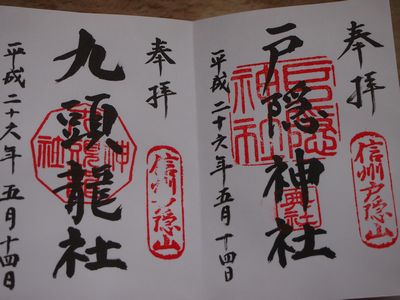 奉拝
戸隠神社
戸隠神社
奥社
信州戸隠山
平成二十六年五月十四日
奉拝
九頭龍社
信州戸隠山
平成二十六年五月十四日